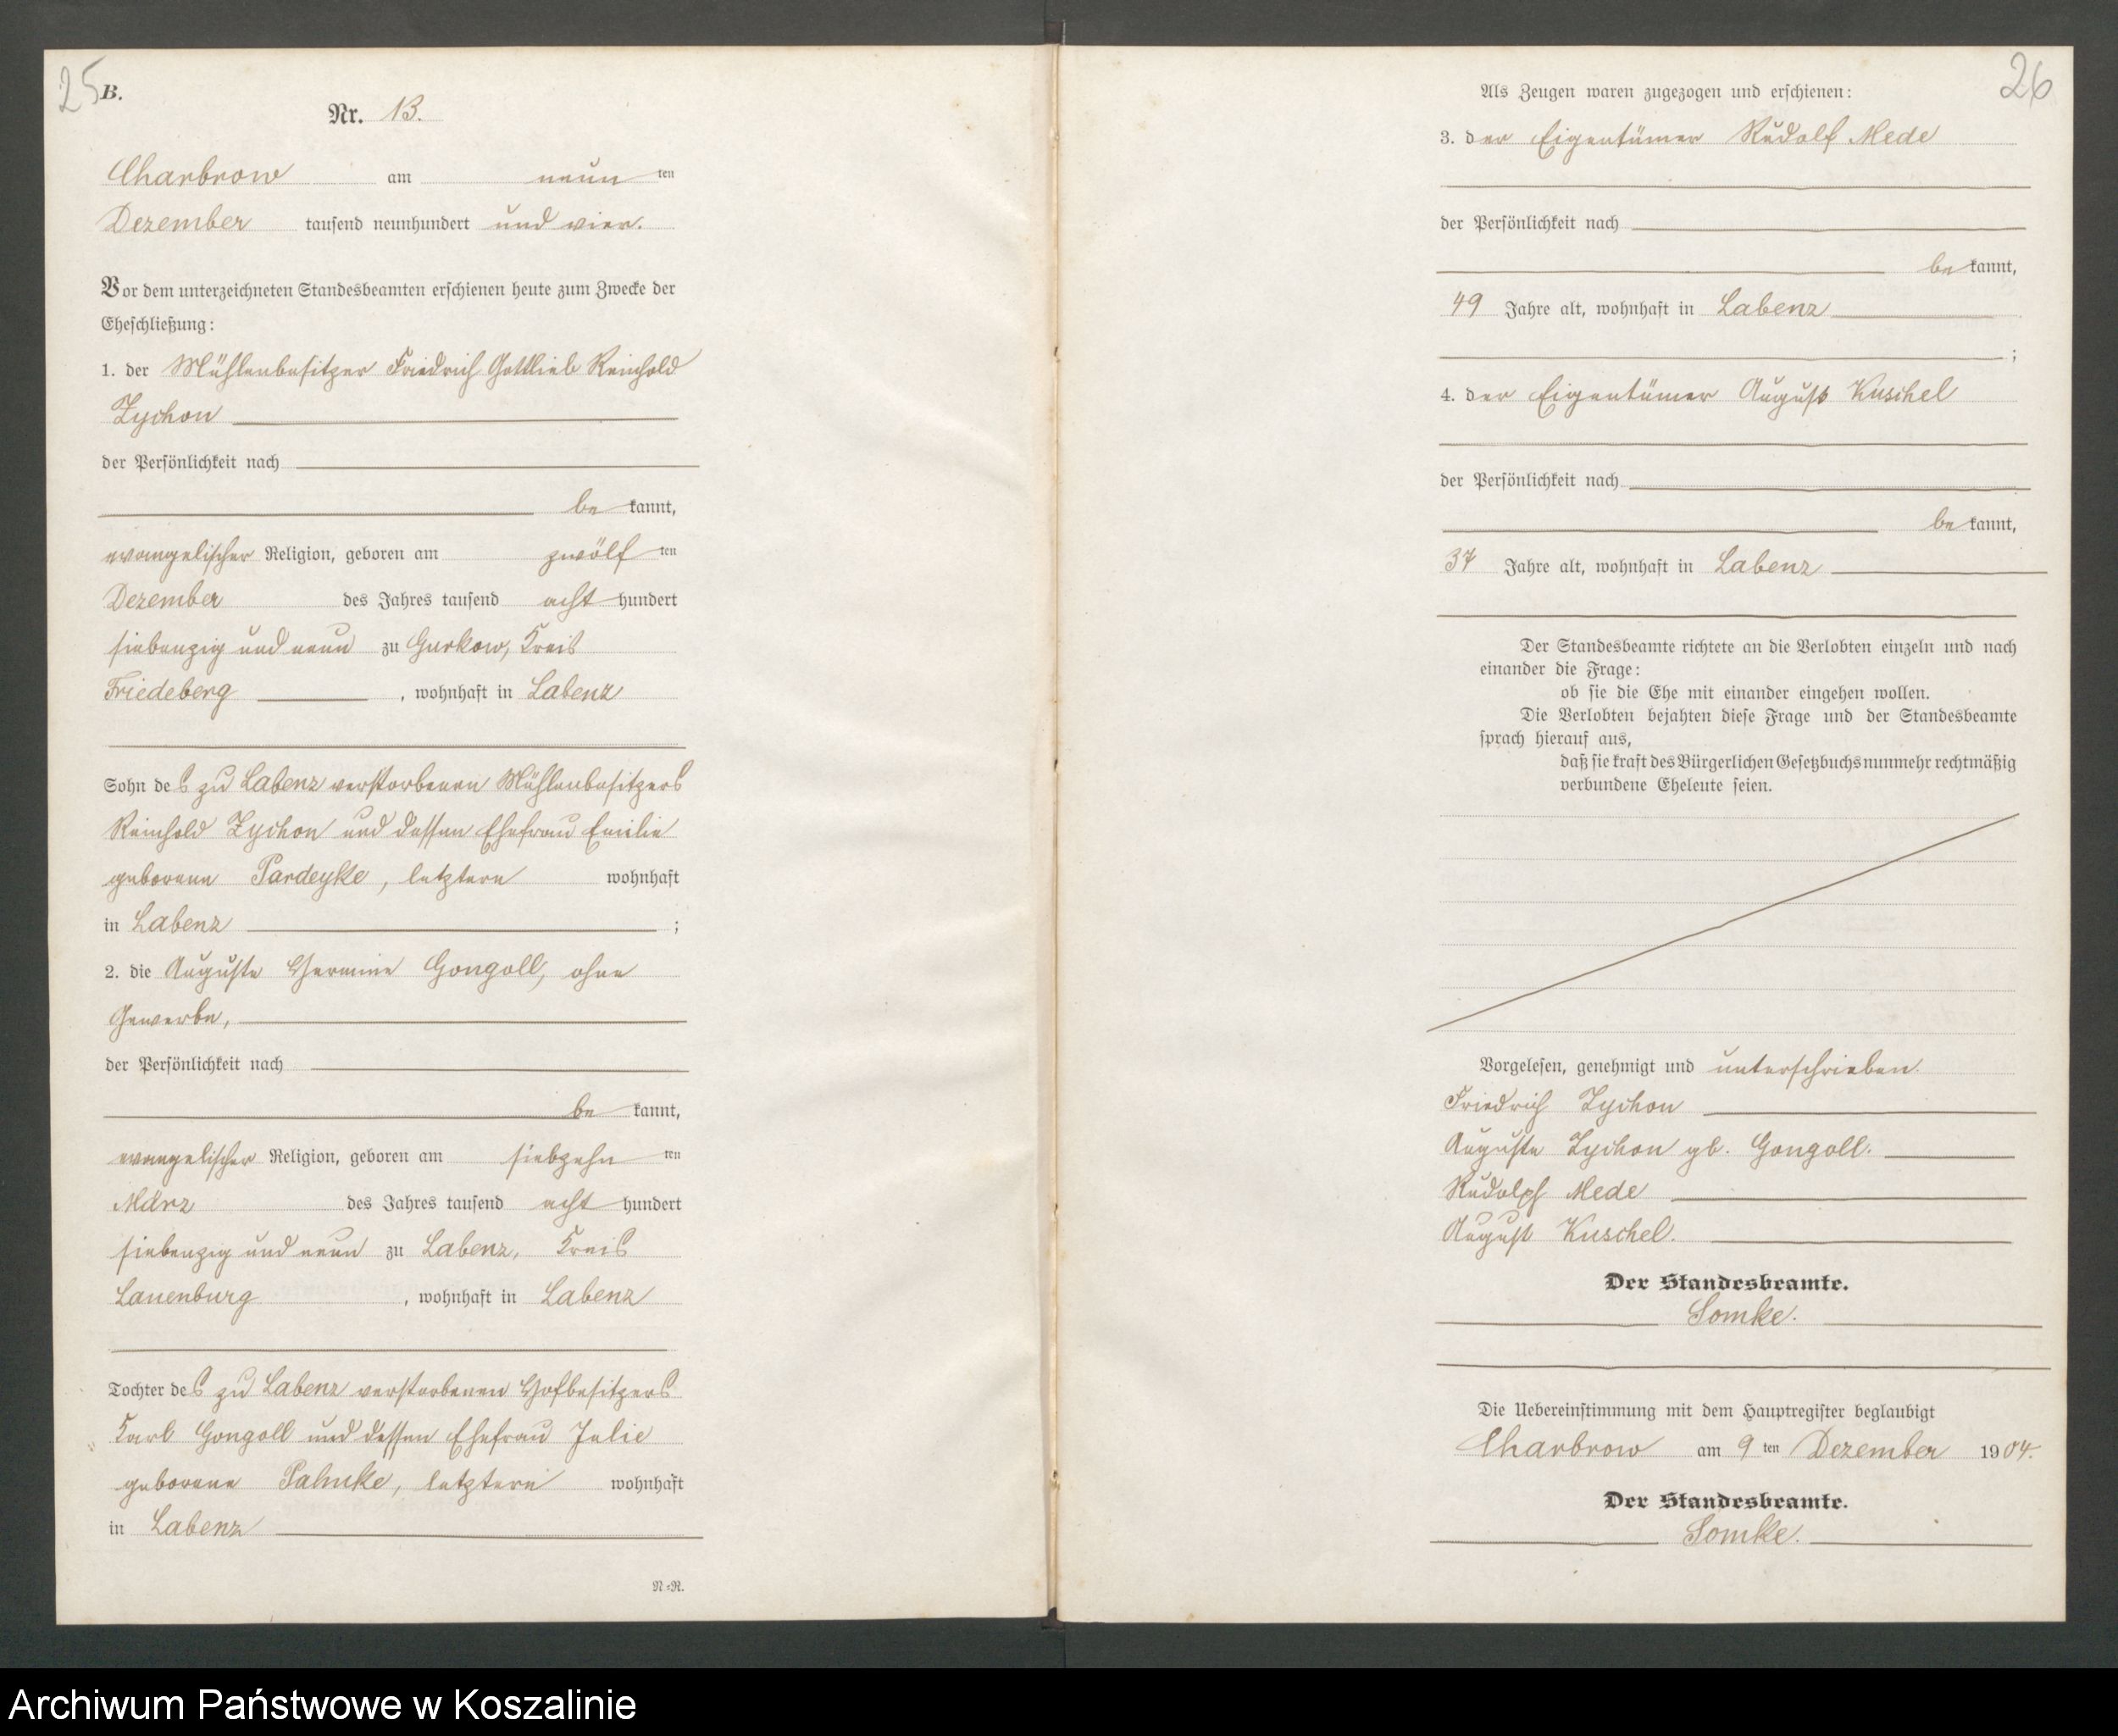 25
B.
Nr. 13.
Charbrow am neun ten
Dezember tausend neunhundert und vier.
Vor dem unterzeichneten Standesbeamten erschienen heute zum Zwecke der
Eheschließung:
1. der Mühlenbesitzer Friedrich Gottlieb Reinhold
Zychon
der Persönlichkeit nach
be kannt,
evangelischer Religion, geboren am zwölf ten
Dezember des Jahres tausend acht hundert
siebenzig und neun zu Gurkow, Kreis
Friedeberg , wohnhaft in Labenz
Sohn des zu Labenz verstorbenen Mühlenbesitzers
Reinhold Zychon und dessen Ehefrau Emilie
geborene Pardeyke, letztere wohnhaft
in Labenz ;
2. die Auguste Hermine Gongoll, ohne
Gewerbe,
der Persönlichkeit nach
be kannt,
evangelischer Religion, geboren am siebzehn ten
März des Jahres tausend acht hundert
siebenzig und neun zu Labenz, Kreis
Lauenburg , wohnhaft in Labenz
Tochter des zu Labenz verstorbenen Hofbesitzers
Karl Gongoll und dessen Ehefrau Julie
geborene Pahnke, letztere wohnhaft
in Labenz
N=R.
26
Als Zeugen waren zugezogen und erschienen:
3. der Eigentümer Rudolf Mede
der Persönlichkeit nach
be kannt,
49 Jahre alt, wohnhaft in Labenz
;
4. der Eigentümer August Kuschel
der Persönlichkeit nach
be kannt,
37 Jahre alt, wohnhaft in Labenz
Der Standesbeamte richtete an die Verlobten einzeln und nach
einander die Frage:
ob sie die Ehe mit einander eingehen wollen.
Die Verlobten bejahten diese Frage und der Standesbeamte
sprach hierauf aus,
daß sie kraft des Bürgerlichen Gesetzbuchs nunmehr rechtmäßig
verbundene Eheleute seien.
Vorgelesen, genehmigt und unterschrieben.
Friedrich Zychon
Auguste Zychon gb. Gongoll.
Rudolph Mede
August Kuschel.
Der Standesbeamte.
Somke.
Die Uebereinstimmung mit dem Hauptregister beglaubigt
Charbrow am 9 ten Dezember 1904.
Der Standesbeamte.
Somke.
Archiwum Państwowe w Koszalinie